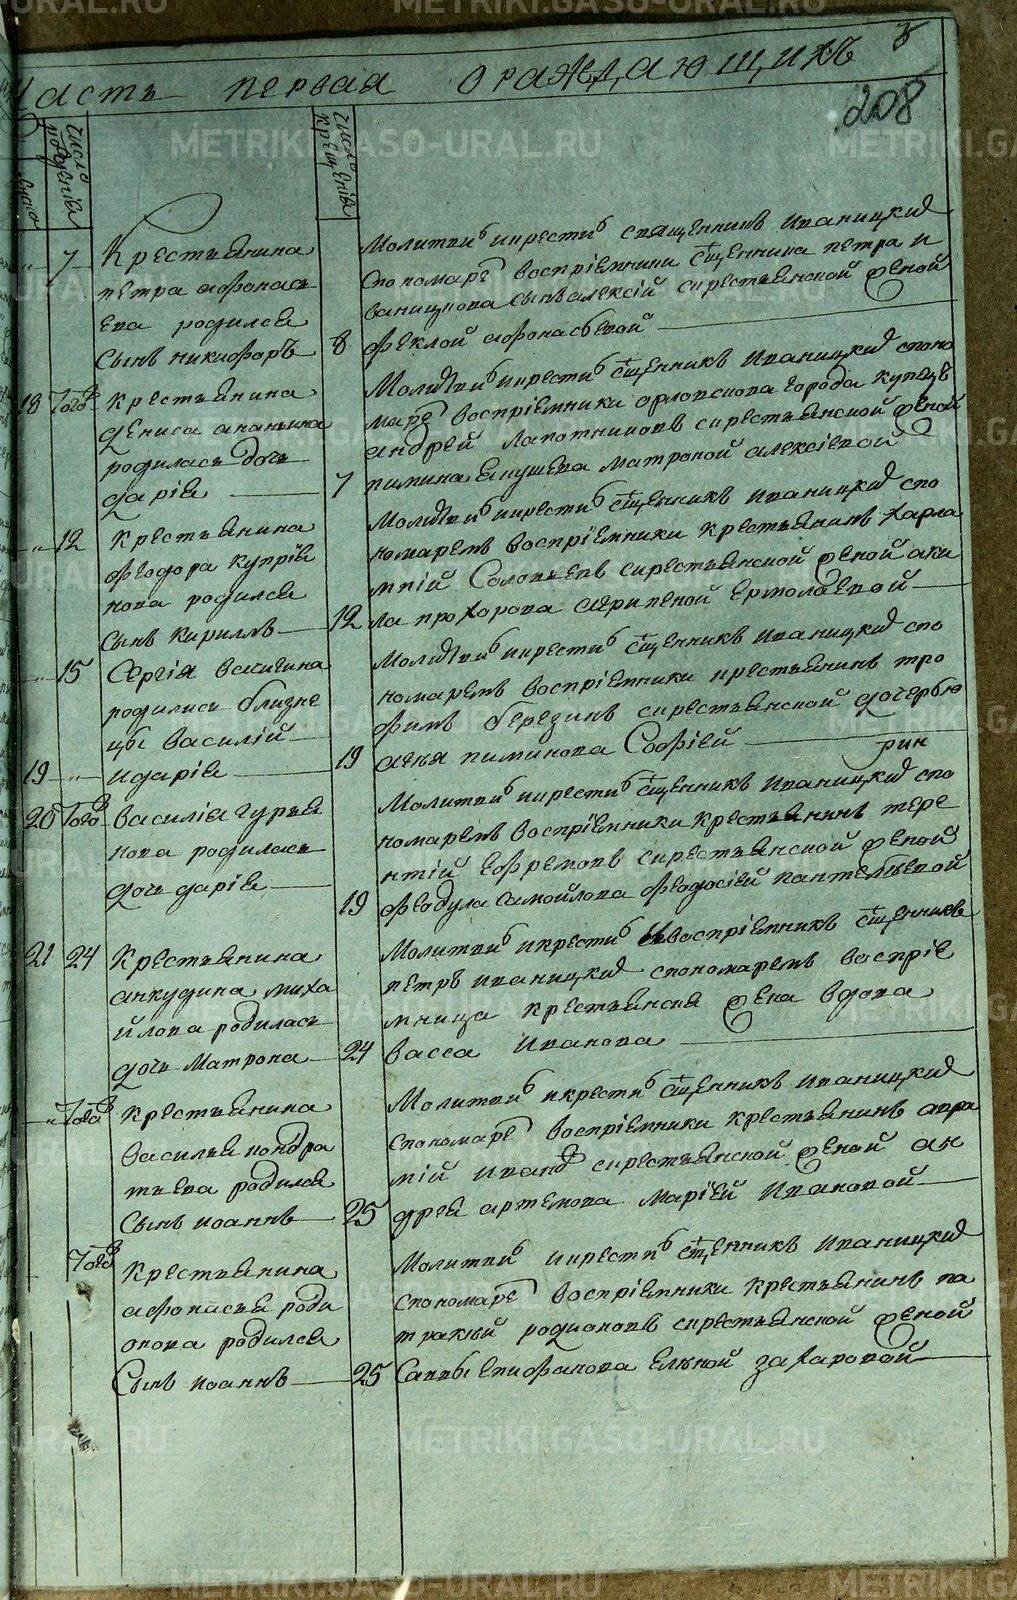 Часть первая ораждающихъ
8
208
число рожденiя
число крещенiя
7 Крестьянина
петра афонась
ева родился
сынъ никифоръ 8
Молитвиѣ икрестиѣ священникъ иваницкiй
спономарѣ воспрiемники сщенника петра и
ваницкова сынъ алексiй скрестьянской женой
феклой афонасьевой
18 Того Крестьянина
дениса ананьина
родилась дочь
дарiя 7
Молитвиѣ икрестиѣ сщенникъ иваницкiй споно
марѣ воспрiемники орловскова города купецъ
андрей лапотниковъ скрестьянской женой
пимина япушева матроной алексiевой
12 Крестьянина
феодора купрiя
нова родился
сынъ кириллъ 12
Молитвиѣ икрестиѣ сщенникъ иваницкiй спо
номаремъ воспрiемники крестьянинъ харла
мпiй Соловьевъ скрестьянской женой аки
ла прохорова агрипеной ермолаевой
15 Сергiя ваничина
родились близне
цы василiй
19 идарiя 19
Молитвиѣ икрестиѣ сщенникъ иваницкiй спо
номаремъ воспрiемники крестьянинъ тро
фимъ березинъ скрестьянской дочерью
агея пиминова Софiей
рин
20 Того василiя гурья
нова родилась
дочь дарiя 19
Молитвиѣ икрестиѣ сщенникъ иваницкiй спо
номаремъ воспрiемники крестьянинъ тере
нтiй ефремовъ скрестьянской женой
федула самойлова феодосiей пантелѣевой
21 24 Крестьянина
анкудина миха
йлова родилась
дочь матрона 24
Молитвиѣ икрестиѣ воспрiемникъ сщенникъ
петръ иваницкiй спономаремъ воспрiе
мница крестьянская жена вдова
васса иванова
Того Крестьянина
василья кондра
тьева родился
сынъ иоаннъ 25
Молитвиѣ икрестиѣ сщенникъ иваницкiй
спономарѣ воспрiемники крестьянинъ авра
мiй скрестьянской женой ан
дрея артемова марiей ивановой
Того Крестьянина
афонасья роди
онова родился
Сынъ иоаннъ 25
Молитвиѣ икрестиѣ сщенникъ иваницкiй
спономарѣ воспрiемники крестьянинъ па
тракѣй родионовъ скрестьянской женой
Саввы епифанова еленой захаровой
METRIKI.GASO-URAL.RU